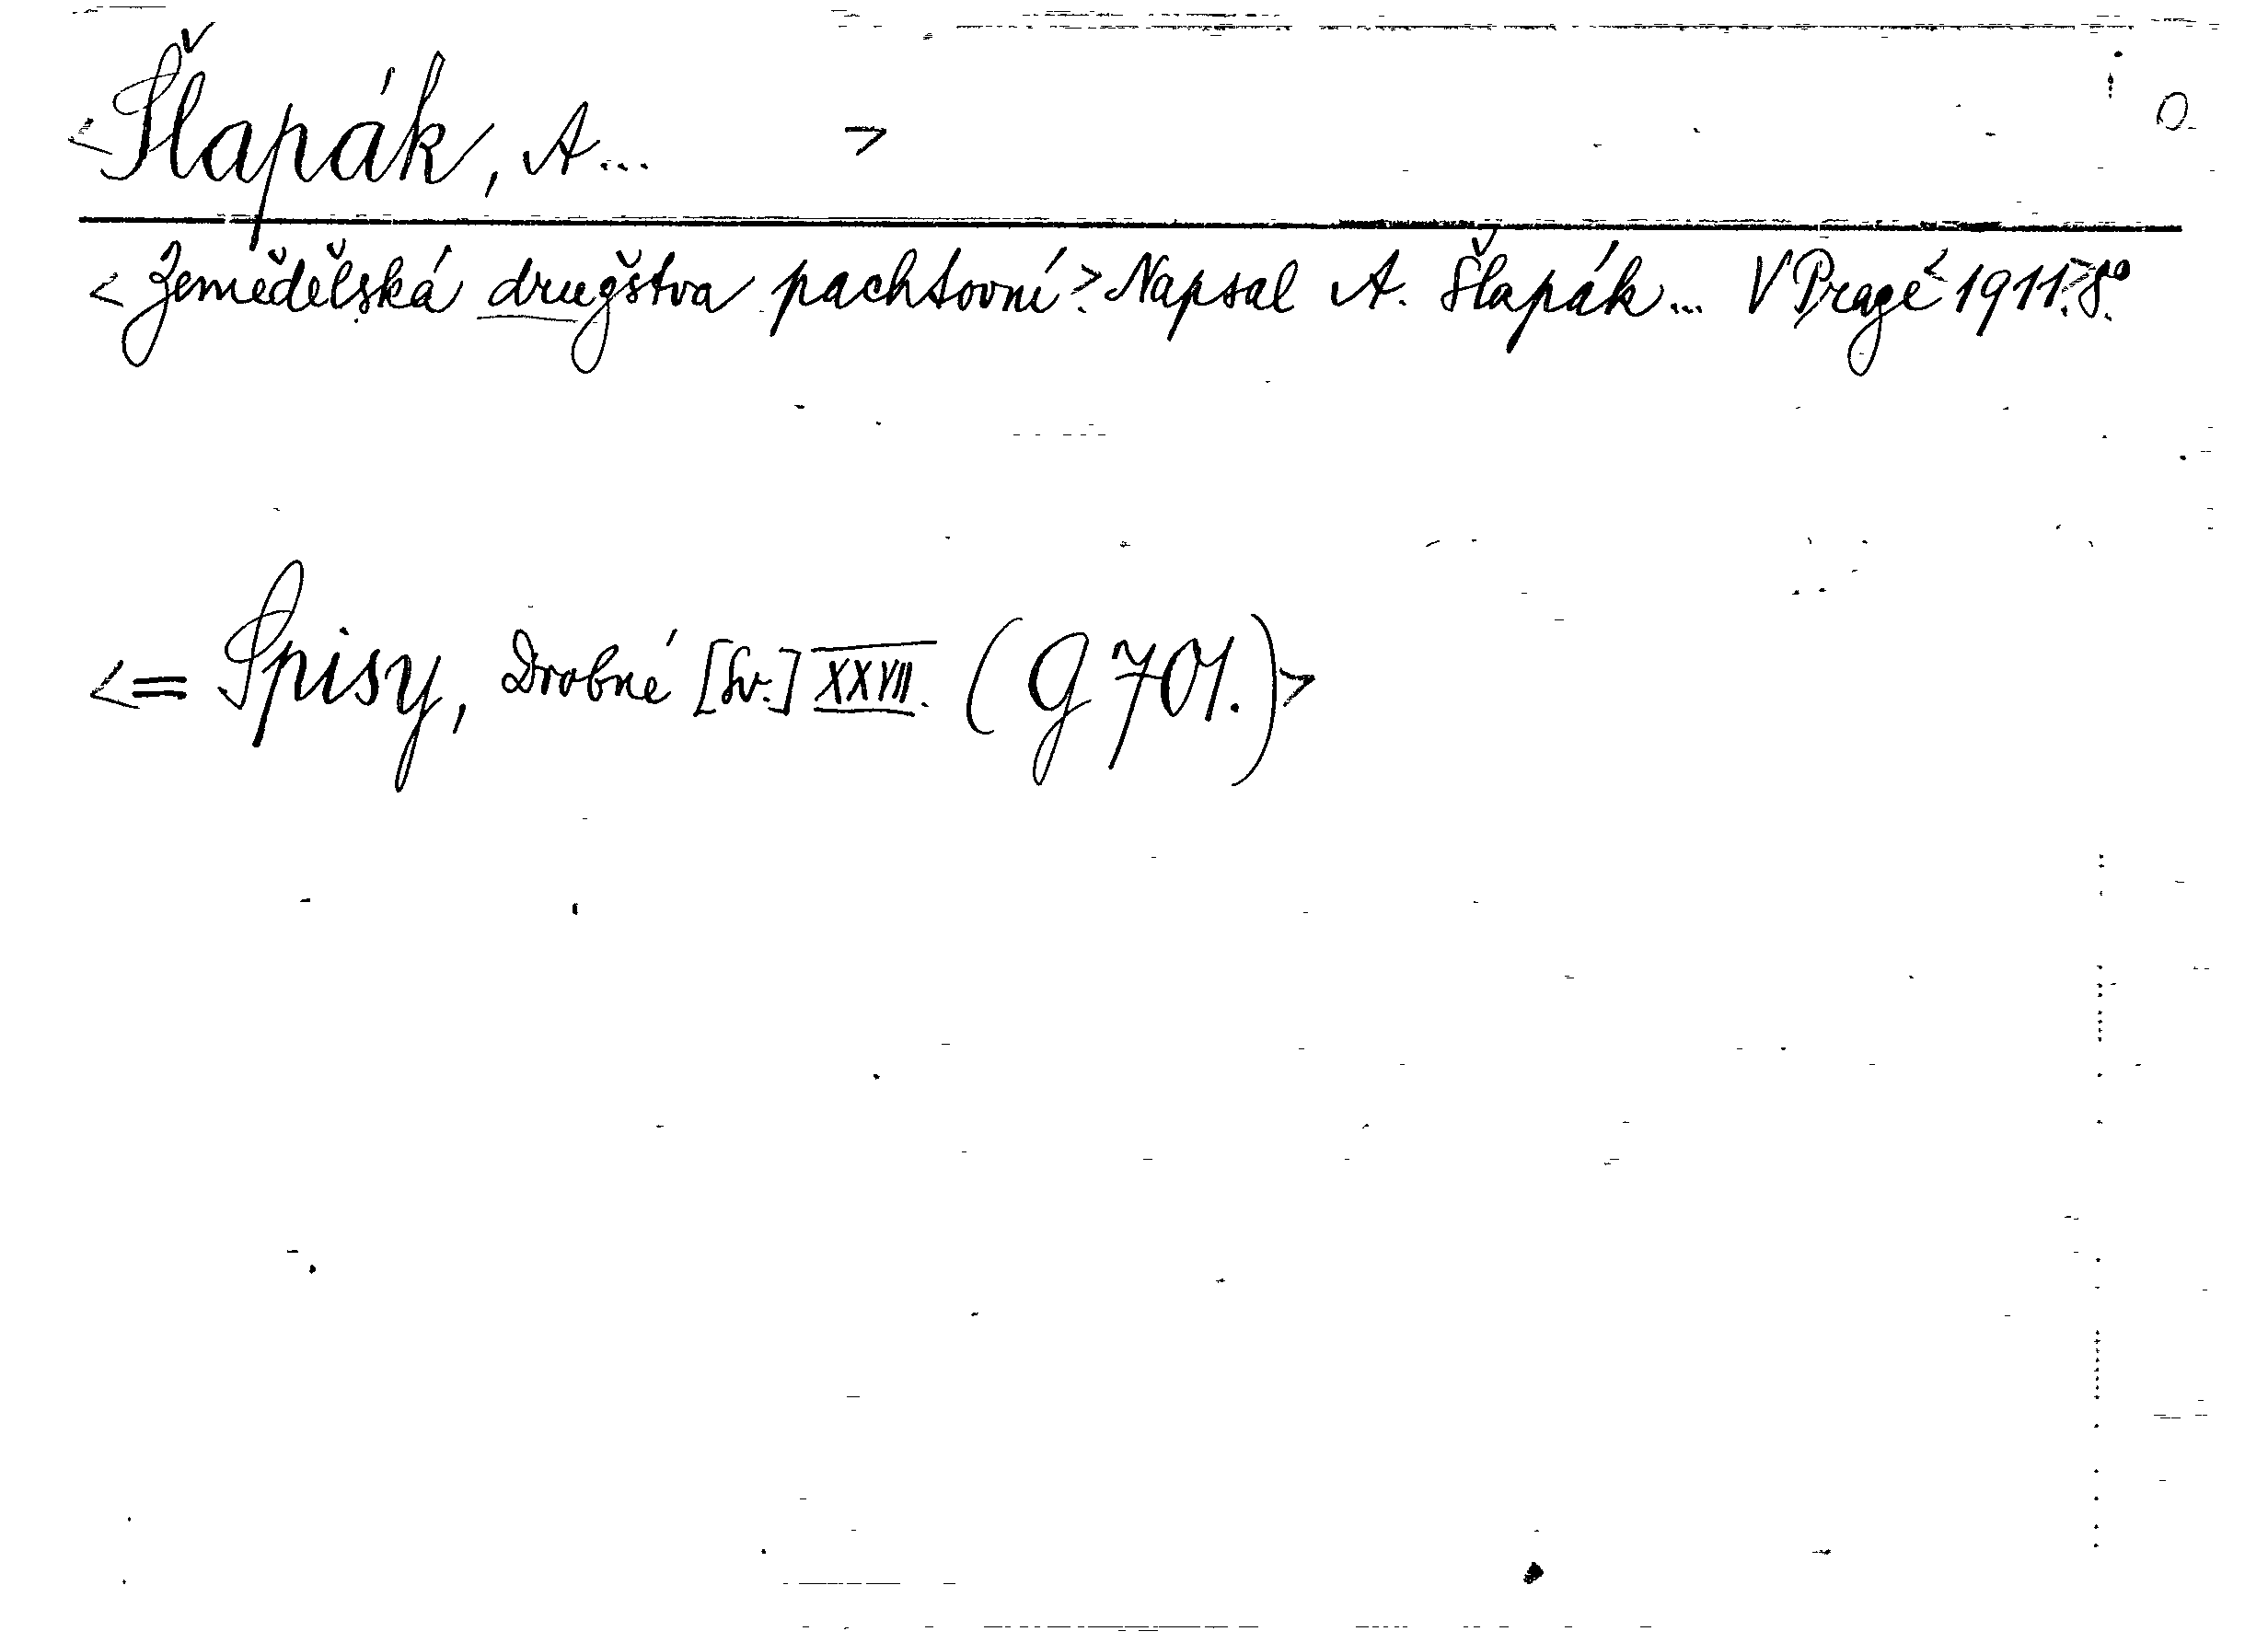 <Šlapák, A... > O
<Zemědělská družstva pachtovní.> Napsal A. Šlapák... V Praze <1911.> 8º.
<= Spisy, Drobné [Sv.] XXVII. (G 701.)>